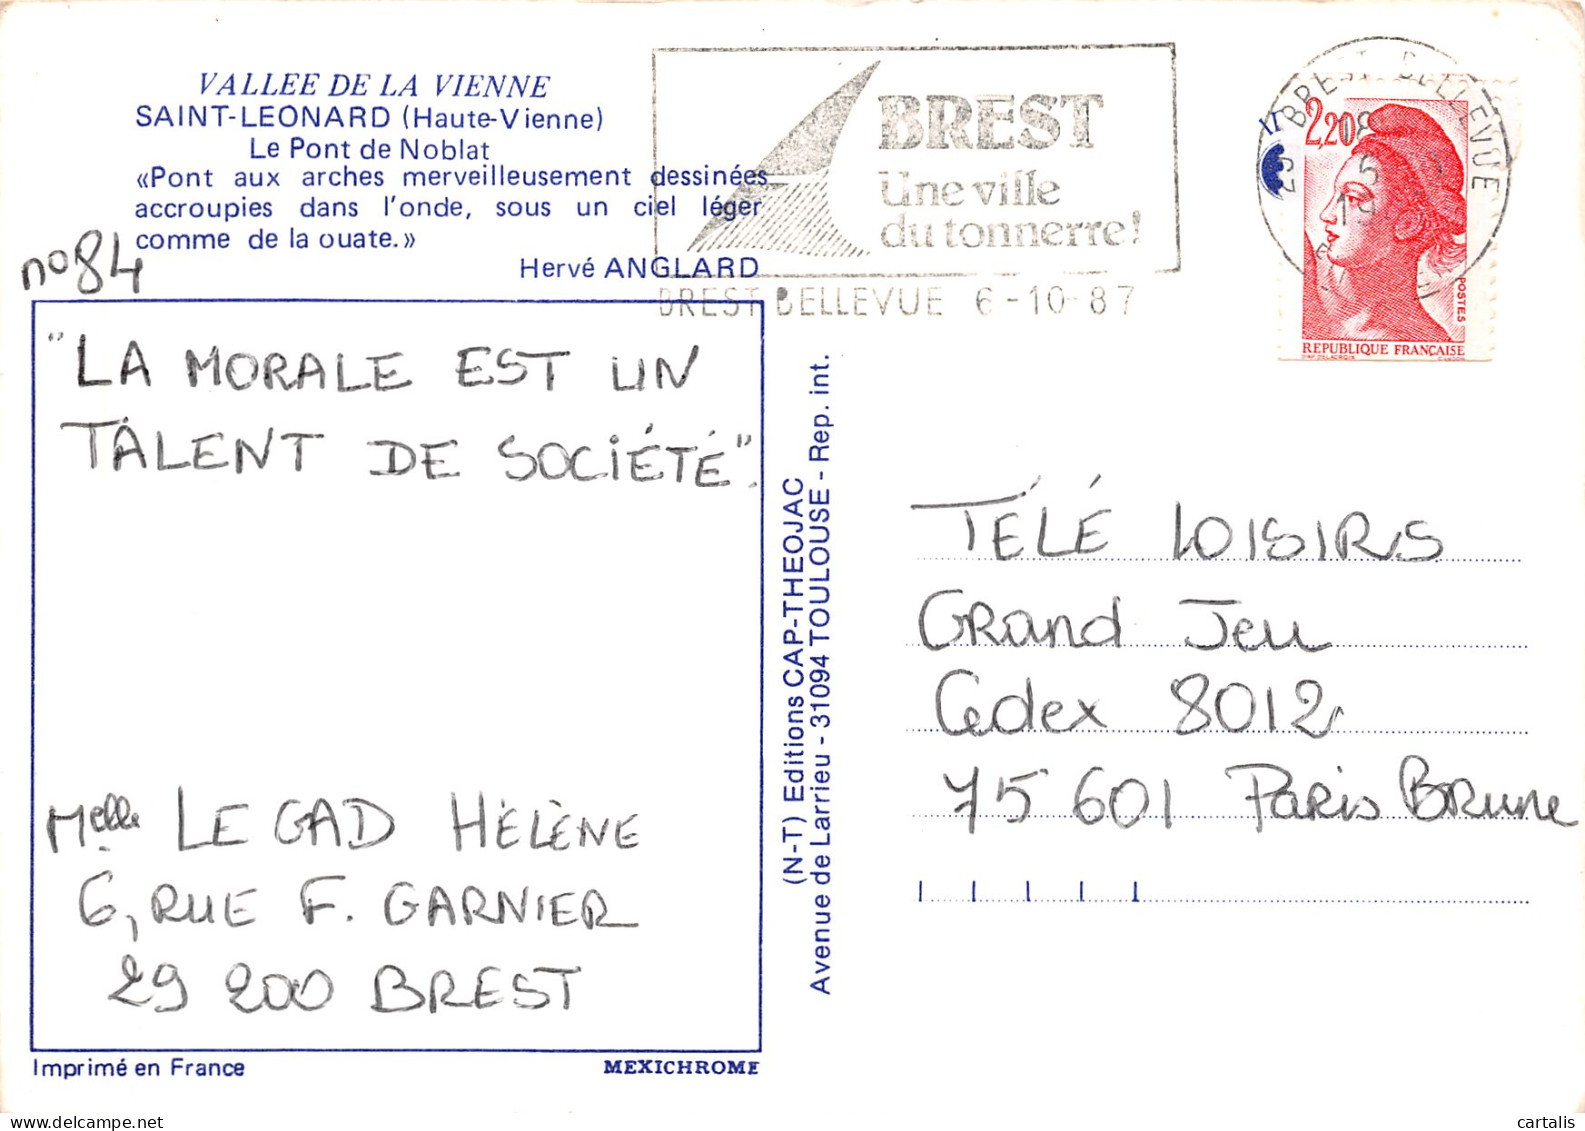 VALLEE DE LA VIENNE
SAINT-LEONARD (Haute-Vienne)
Le Pont de Noblat
«Pont aux arches merveilleusement dessinées
accroupies dans l'onde, sous un ciel léger
comme de la ouate.»
Hervé ANGLARD
n° 84
"LA MORALE EST UN
TALENT DE SOCIÉTÉ".
Melle LE GAD HÉLÈNE
6, RUE F. GARNIER
29 200 BREST
Imprimé en France
MEXICHROME
(N-T) Editions CAP-THEOJAC
Avenue de Larrieu - 31094 TOULOUSE - Rep. int.
BREST
Une ville
du tonnerre!
BREST BELLEVUE 6-10-87
29 BREST BELLEVUE
18
2,20
POSTES
REPUBLIQUE FRANÇAISE
TÉLÉ LOISIRS
GRand Jeu
Cedex 8012
75 601 PARIS BRune
cartalis
www.delcampe.net